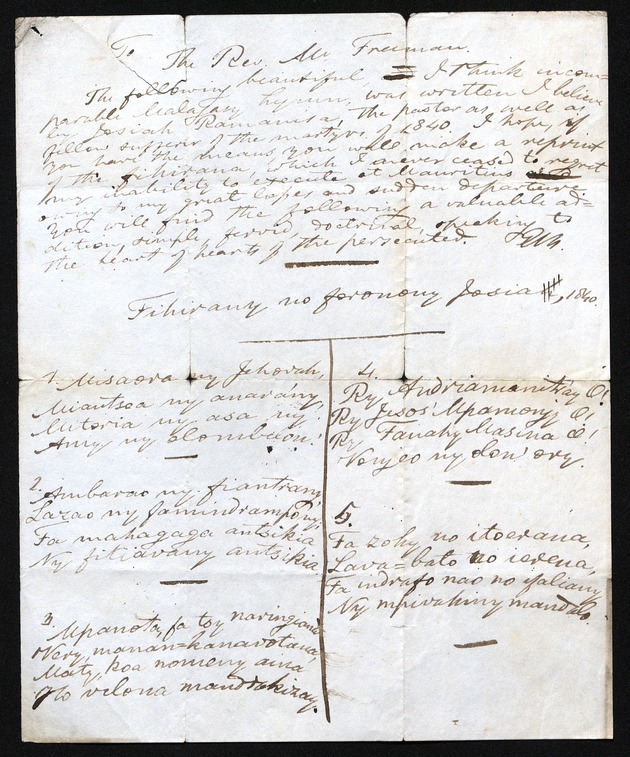 To
The Rev. Mr Freeman.
The following beautiful I think incom=
parable Malagasy hymn, was written I believe
by Josiah Ramanisa, the pastor as well as
fellow sufferer of the martyrs of 1840. I hope, if
you have the means, you will make a reprint
of the Fihirana, which I never ceased to regret
my inability to execute at Mauritius
owing to my great lapes and sudden departure.
You will find the following a valuable ad=
dition, simple fervid, doctrinal speaking to
the heart of hearts of the persecuted.
Fihirany no foronony Josia, 1840.
1. Misaora ny Jehovah,
Miantsoa ny anarany
Mitoria ny asa ny
Amy ny olombelon'
2. Ambarao ny fiantrany
Lazao ny famindrampony
Fa mahagaga antsikia
Ny fitiavany antsikia
3. Mpanota, fa toy naringiana
Very, manan=kanavotana,
Maty, koa nomeny aina
Ho velona mandrakizay.
4.
Ry Andriamanitray O!
Ry Jesos Mpamonjy O!
Ry Fanahy Masina O!
Vonjeo ny olon' ory.
5.
Fa zohy no itoerana,
Lava=bato no ierena,
Fa indrafo nao no ifaliany
Ny mpivahiny mandalo.